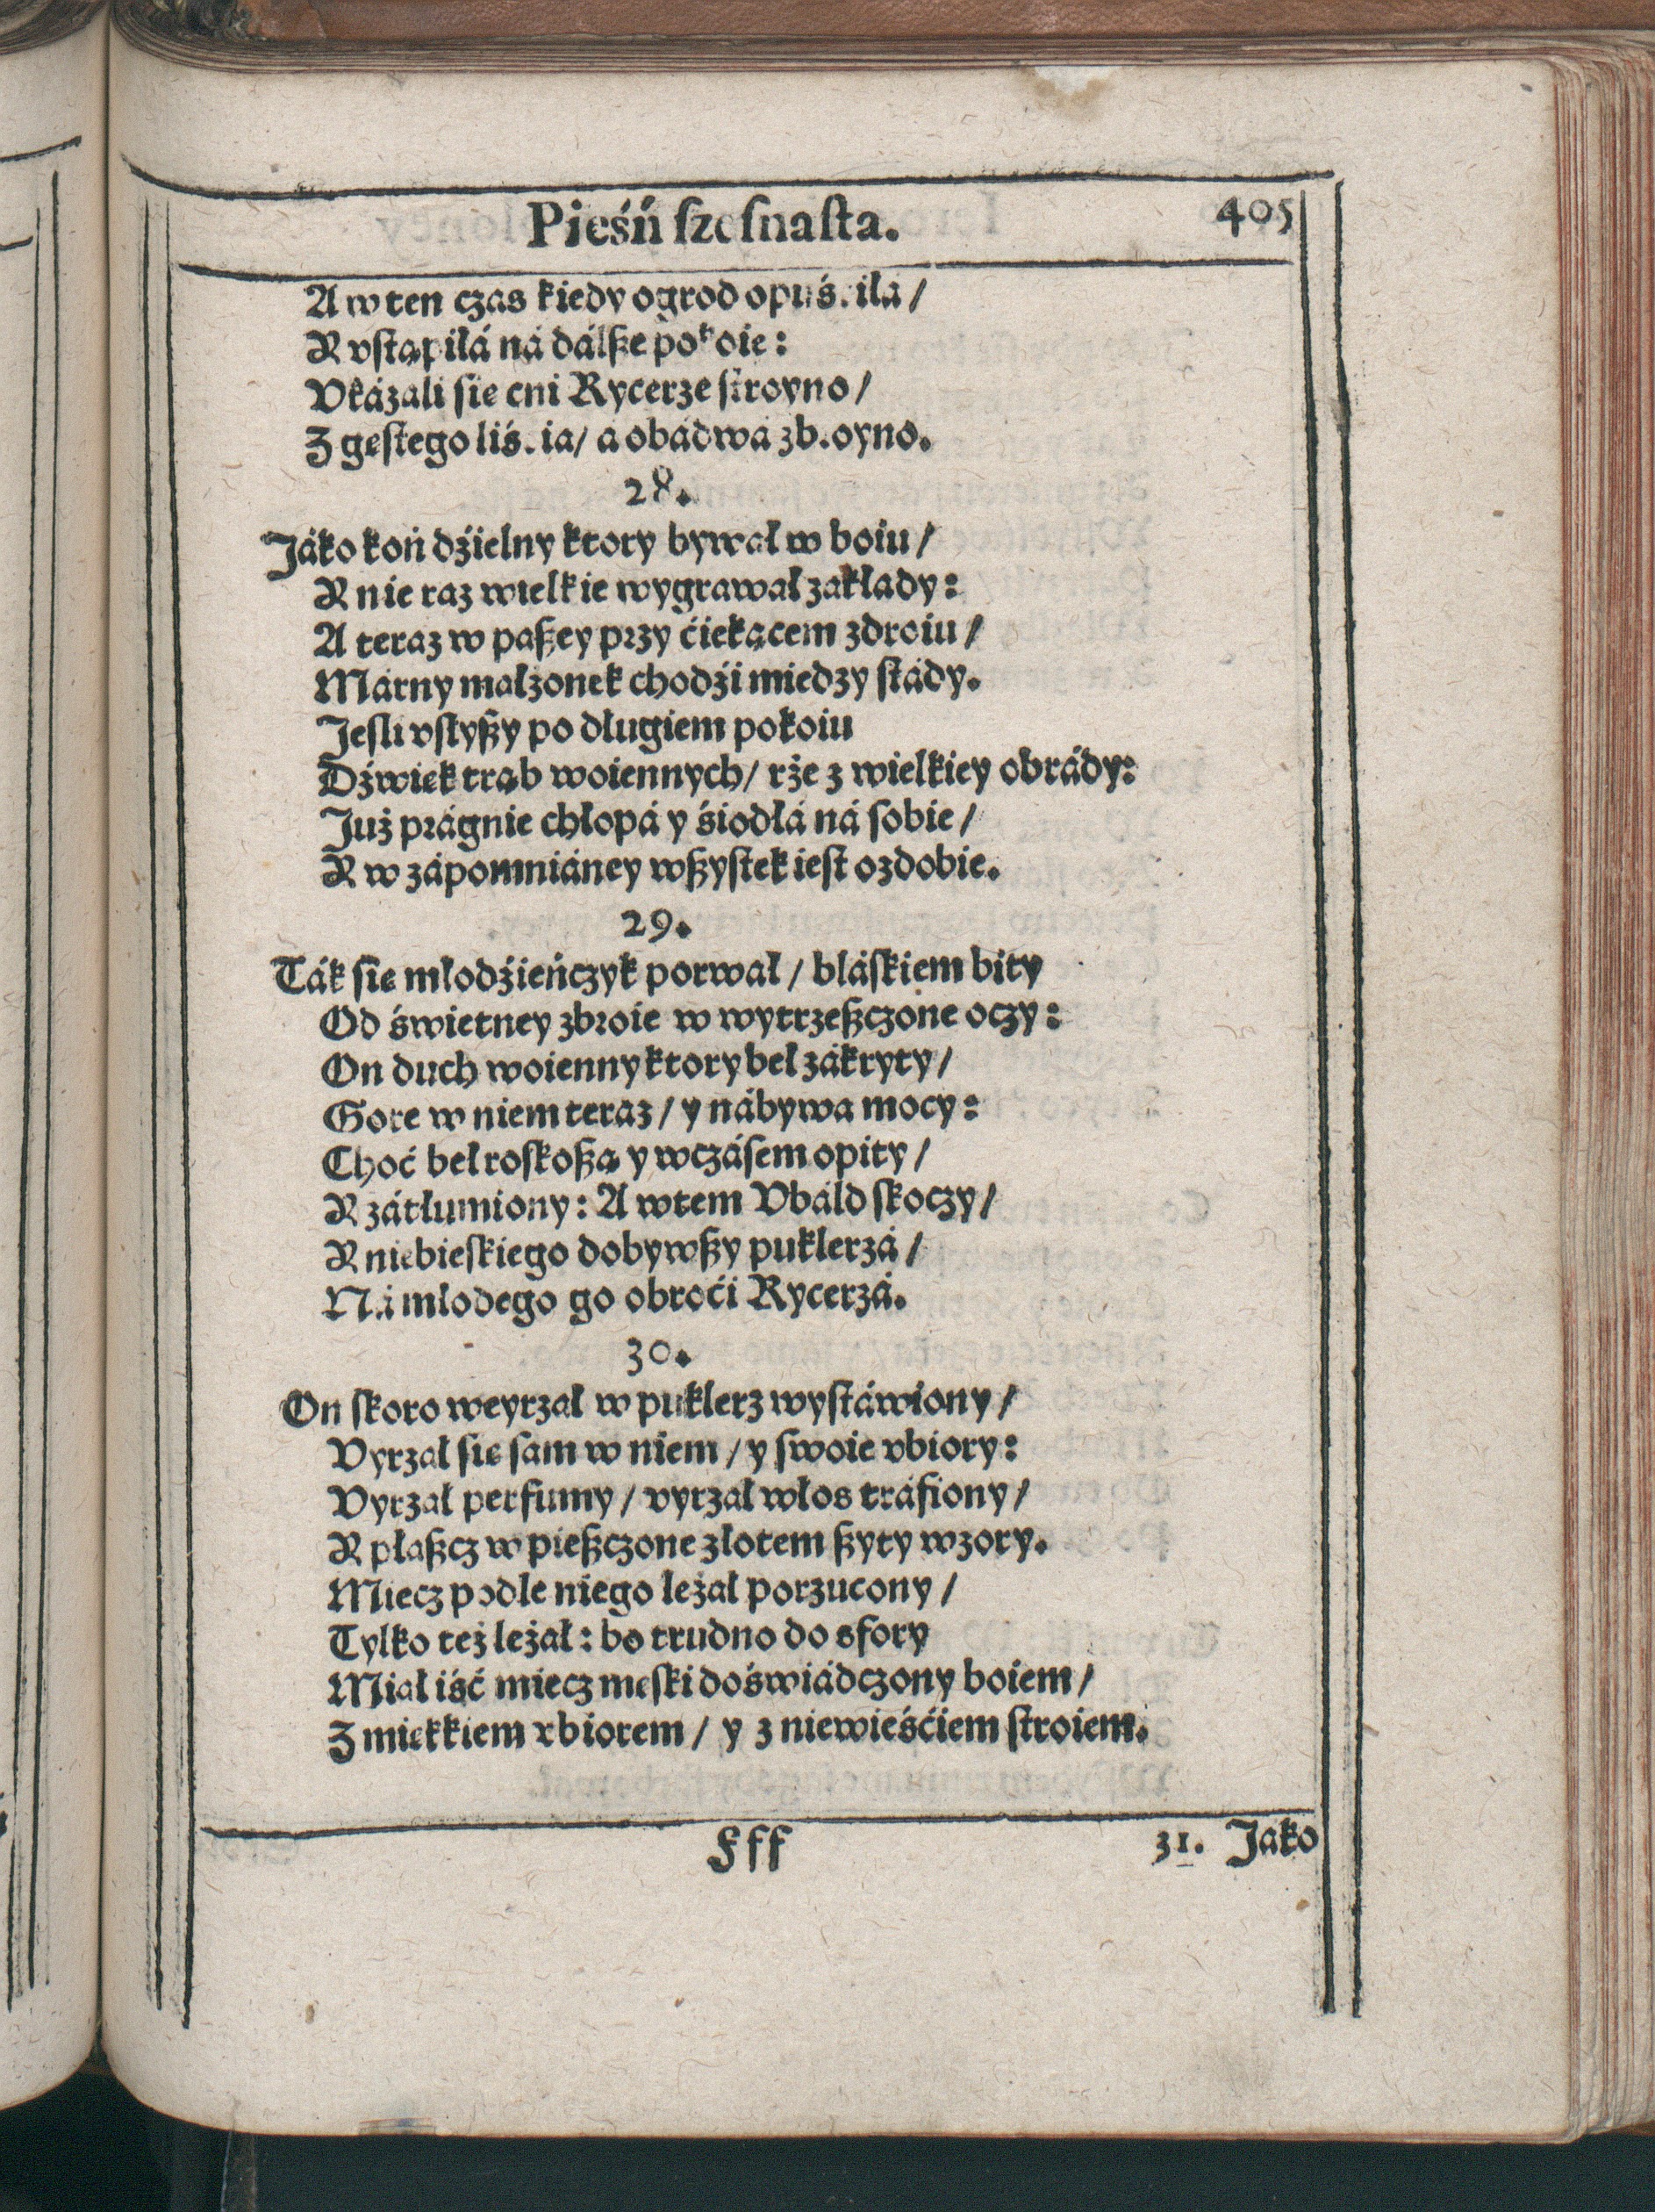 Pieśń szesnasta. 405
A w ten czas kiedy ogrod opuśćiła /
R vstąpiłá ná dálsze pokoie:
Vkázáli się cni Rycerze stroyno /
Z gęstego liśćia / a obádwá zbroyno.
28.
Jáko koń dźielny ktory bywał w boiu /
R nie raz wielkie wygrawał zakłády:
A teraz w paszey przy ćiekącem zdroiu /
Márny małżonek chodźi miedzy stády.
Jesli vsłyszy po długiem pokoiu
Dźwięk trąb woiennych / rże z wielkiey obrády:
Już prágnie chłopá y śiodłá ná sobie /
R w zápomniáney wszystek iest ozdobie.
29.
Ták się młodźieńczyk porwał / bláskiem bity
Od świetney zbroie w wytrzeszczone oczy:
On duch woienny ktory beł zákryty /
Gore w niem teraz / y nábywa mocy:
Choć beł roskoszą y wczásem opity /
R zátłumiony: A wtem Vbáld skoczy /
R niebieskiego dobywszy puklerzá /
Ná młodego go obroći Rycerzá.
30.
On skoro weyrzał w puklerz wystáwiony /
Vyrzał się sam w niem / y swoie vbiory:
Vyrzał perfumy / vyrzał włos tráfiony /
R płaszcz w pieszczone złotem szyty wzory.
Miecz podle niego leżał porzucony /
Tylko też leżał: bo trudno do sfory
Miał iść miecz męski doświádczony boiem /
Z miękkiem vbiorem / y z niewieśćiem stroiem.
Fff 31. Jako